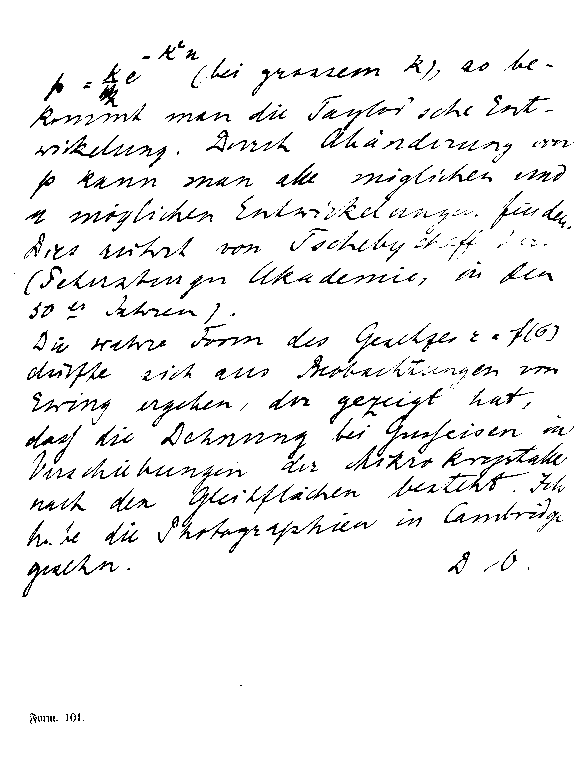 p = k/√π e^{-k²u} (bei grossem k), so be-
kommt man die Taylor'sche Ent-
wickelung. Durch Abänderung von
p kann man alle möglichen und
möglichen Entwickelungen finden.
Dies rührt von Tschebyscheff her.
(Petersburger Akademie, in den
50er Jahren).
Die wahre Form des Gesetzes ε = f(σ)
dürfte sich aus Beobachtungen von
Ewing ergeben, der gezeigt hat,
dass die Dehnung bei Gusseisen in
Verschiebungen der Mikrokrystalle
nach den Gleitflächen besteht. Ich
habe die Photographien in Cambridge
gesehn. D. O.
Form. 101.